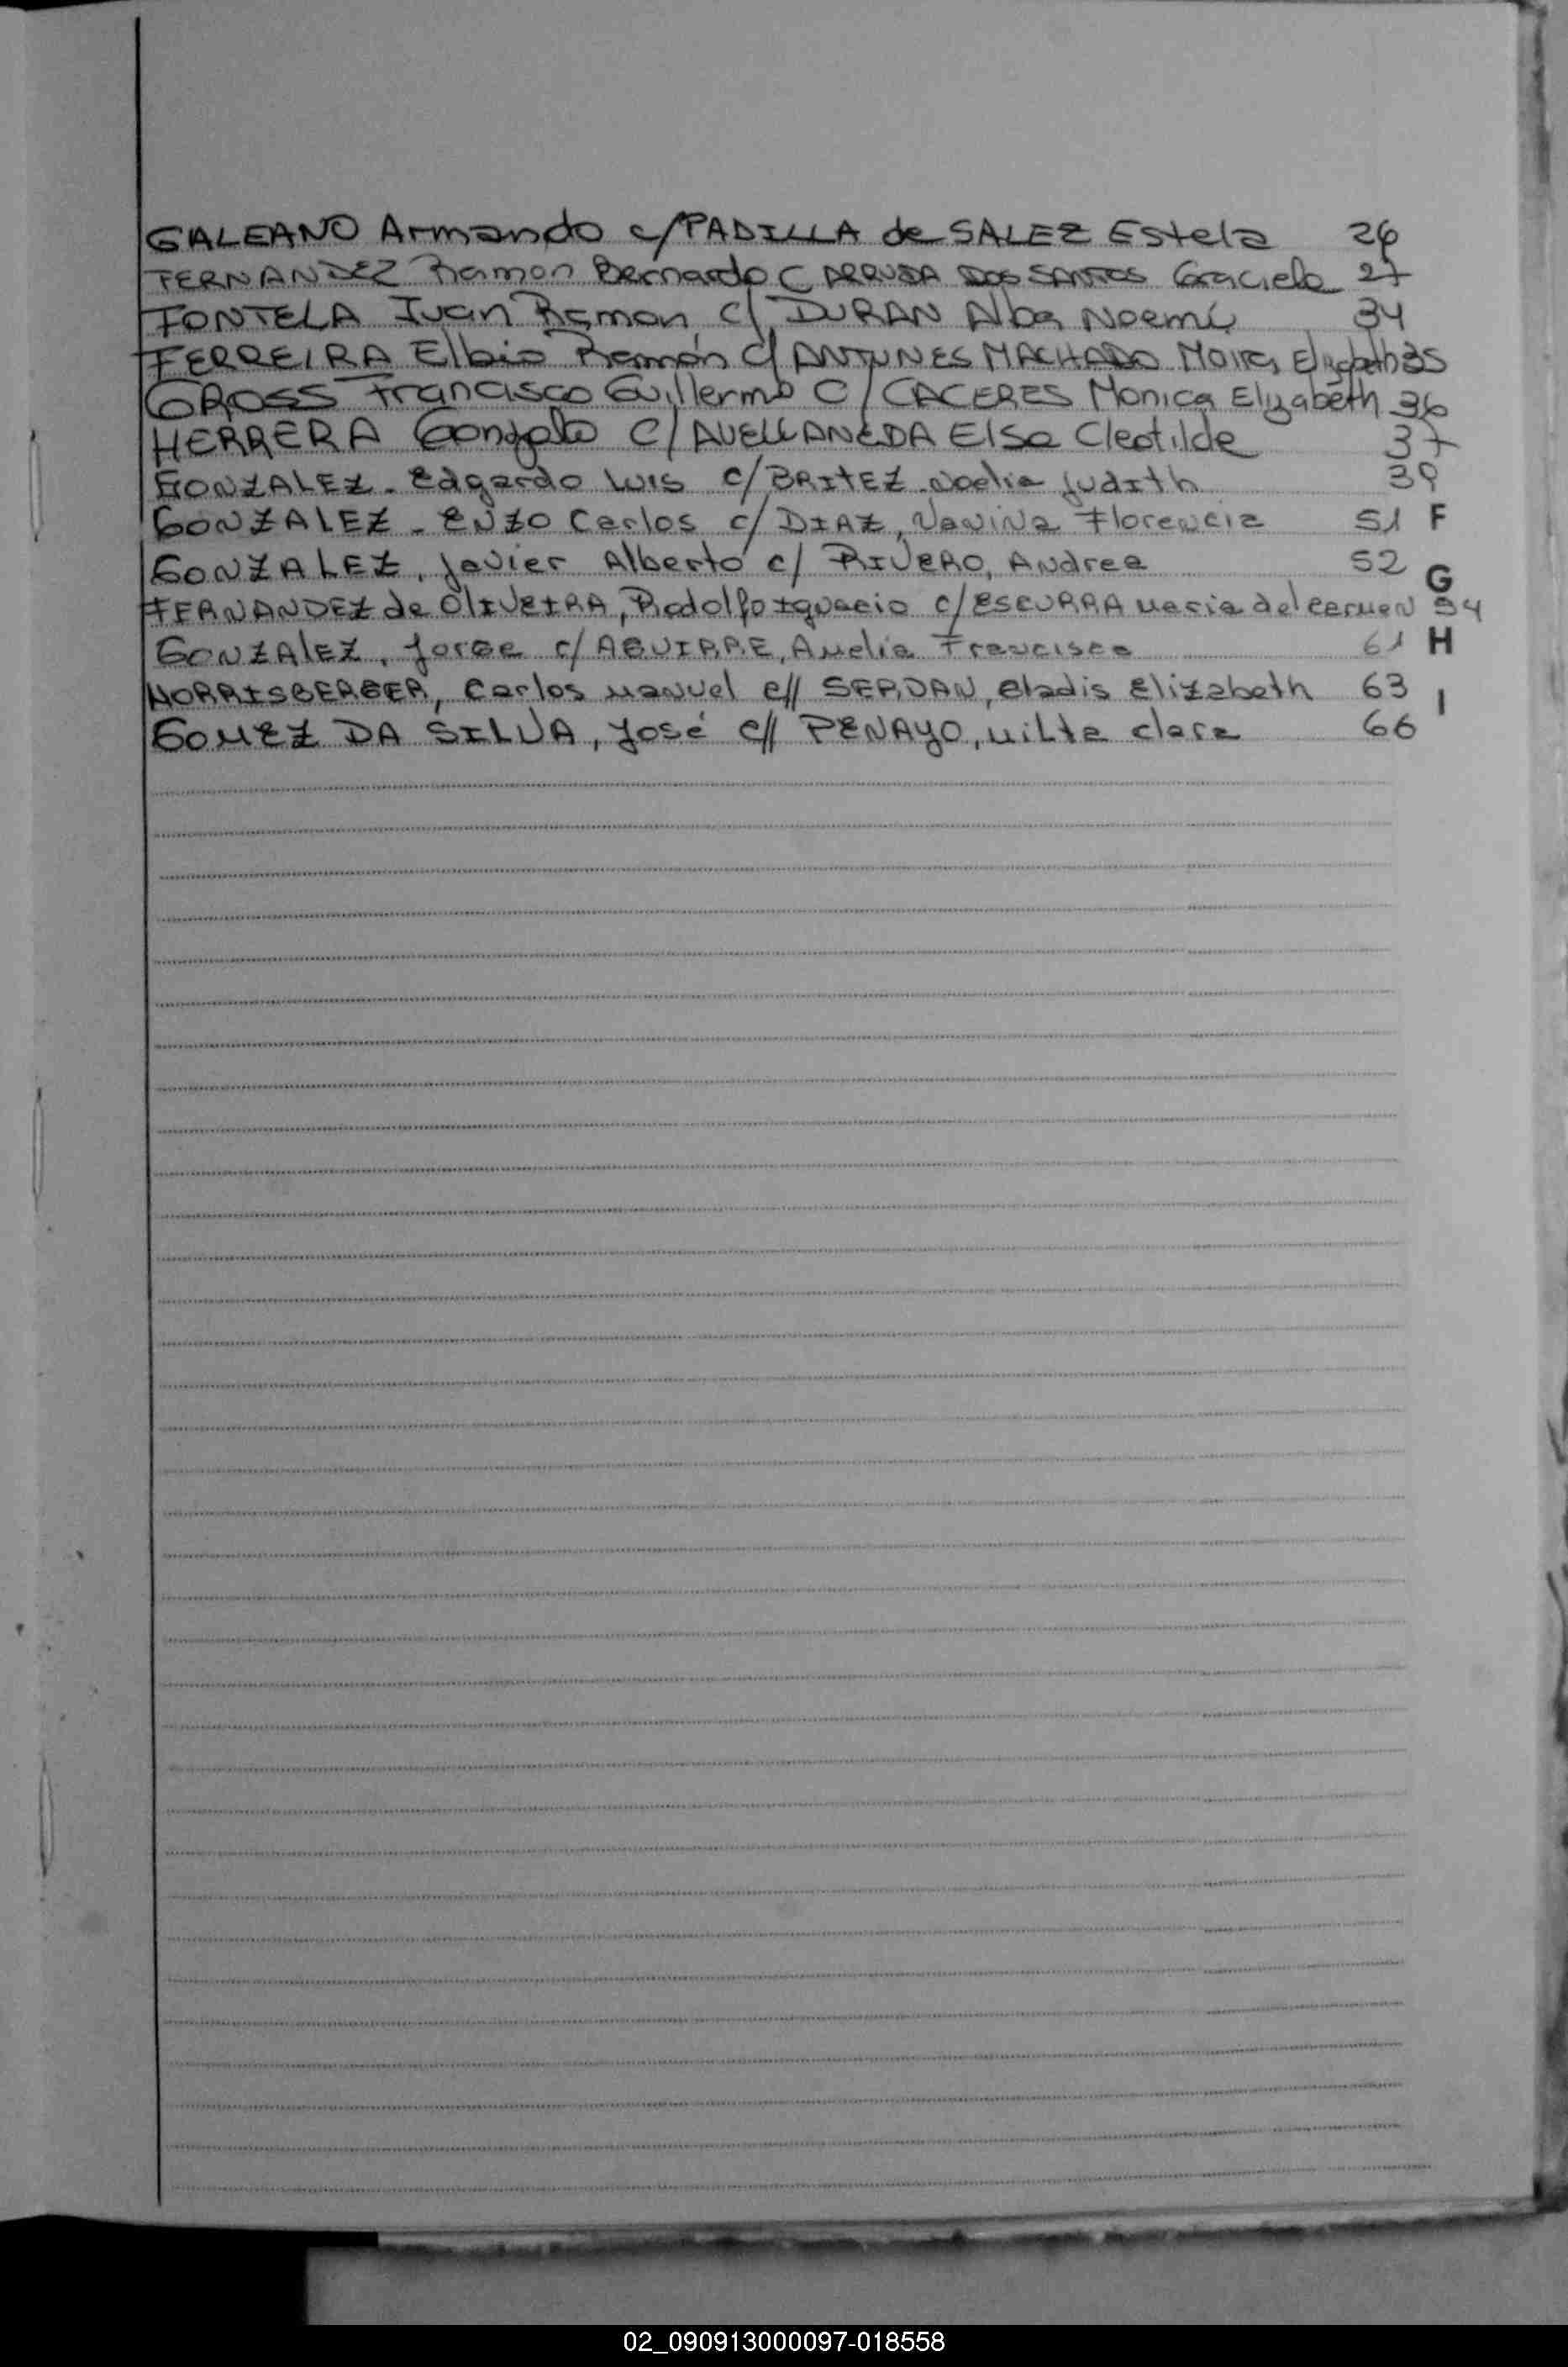 GALEANO Armando c/PADILLA de SALEZ Estela 26
FERNANDEZ Ramon Bernardo C ARRUDA DOS SANTOS Graciela 27
FONTELA Ivan Ramon c/ DURAN Alba Noemí 34
FERREIRA Elbio Ramón c/ ANTUNES MACHADO Moira Elizabeth 35
GROSS Francisco Guillermo C/ CACERES Monica Elizabeth 36
HERRERA Gonzalo C/ AVELLANEDA Elsa Cleotilde 37
GONZALEZ. Edgardo Luis c/ BRITEZ. Noelia Judith 39
GONZALEZ - ENZO Carlos c/ DIAZ, Vanina Florencia 51 F
GONZALEZ, Javier Alberto c/ RIVERO, Andrea 52
G
FERNANDEZ de OLIVEIRA, Rodolfo Ignacio c/ ESCURRA Maria del Carmen 54
GONZALEZ, Jorge c/ AGUIRRE, Amelia Francisca 61 H
HORRISBERGER, Carlos Manuel c// SERDAN, Gladis Elizabeth 63
I
GOMEZ DA SILVA, José c// PENAYO, Milta Clara 66
02_090913000097-018558